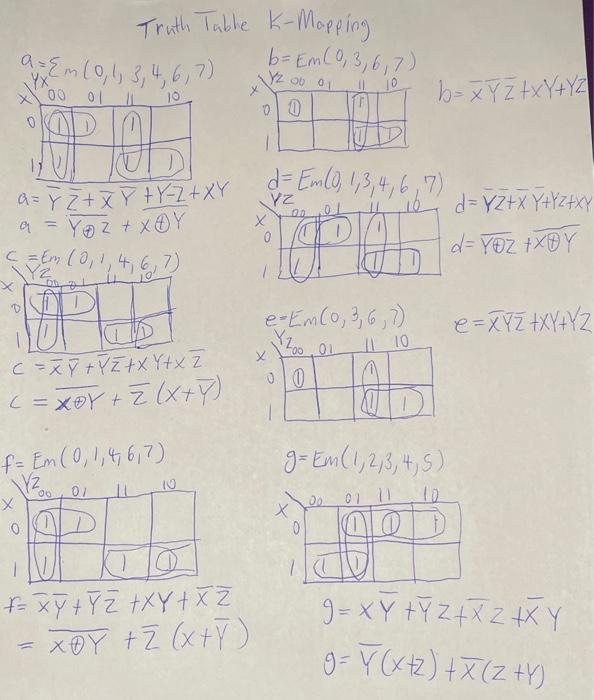 Truth Tabhe K-Mapping
a=Σm(0,1,3,4,6,7)
YX
X 00 01 11 10
0 1 1 1
1 1 1 1
a= Y̅ Z̅ + X̅ Y̅ + YZ + XY
a = \overline{Y⊕Z} + \overline{X⊕Y}
b=Em(0,3,6,7)
YZ 00 01 11 10
X
0 1 1
1 1 1
b= X̅ Y̅ Z̅ + XY + YZ
c =Em(0,1,4,6,7)
YZ
X 00 01 11 10
0 1 1
1 1 1 1
c = X̅ Y̅ + Y̅ Z̅ + XY + X Z̅
c = \overline{X⊕Y} + Z̅ (X+Y̅)
d=Em(0,1,3,4,6,7)
YZ
X 00 01 11 10
0 1 1 1
1 1 1 1
d= Y̅Z̅ + X̅ Y̅ + YZ + XY
d= \overline{Y⊕Z} + \overline{X⊕Y}
e=Em(0,3,6,7)
YZ 00 01 11 10
X
0 1 1
1 1 1
e= X̅ Y̅ Z̅ + XY + YZ
f= Em(0,1,4,6,7)
YZ 00 01 11 10
X
0 1 1
1 1 1 1
f= X̅ Y̅ + Y̅ Z̅ + XY + X̅ Z̅
= \overline{X⊕Y} + Z̅ (X+Y̅)
g=Em(1,2,3,4,5)
X 00 01 11 10
0 1 1 1
1 1 1
g= X Y̅ + Y̅ Z + X̅ Z + X̅ Y
g= Y̅(X+Z) + X̅(Z+Y)